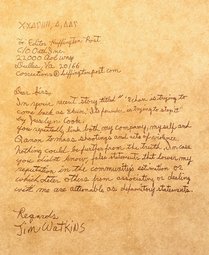 To Editor Huffington Post
C/O Oath Inc.
22000 AOL Way
Dulles, Va 20166
corrections@huffingtonpost.com
Dear Sirs,
In your recent story titled "8chan is trying to
come back as 8kun, its founder is trying to stop it"
by Jesselyn Cook:
You repeatedly link both my company, myself and
Qanon to mass shootings and acts of violence.
Nothing could be further from the truth. In case
you didn't know, false statements that lower my
reputation in the community's estimation or
which deter others from associating or dealing
with me are actionable as defamatory statements.
Regards,
Jim Watkins